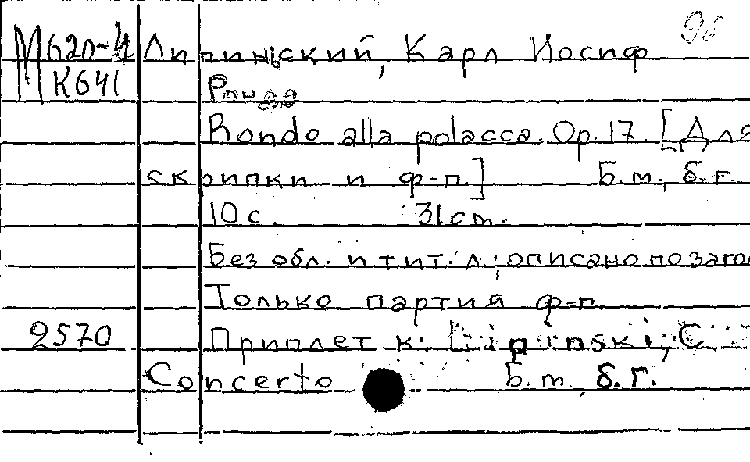 96
М620-4 Липинский, Карл Иосиф
К641 Рондо
Rondo alla polacca. Op. 17. [Для
скрипки и ф-п.] Б.м., б.г.
10 с. 31 cm.
Без обл. и тит. л; описано по заго
Только партия ф-п.
2570 Приплет к: Lipinski, C.
Concerto Б.м., б.г.